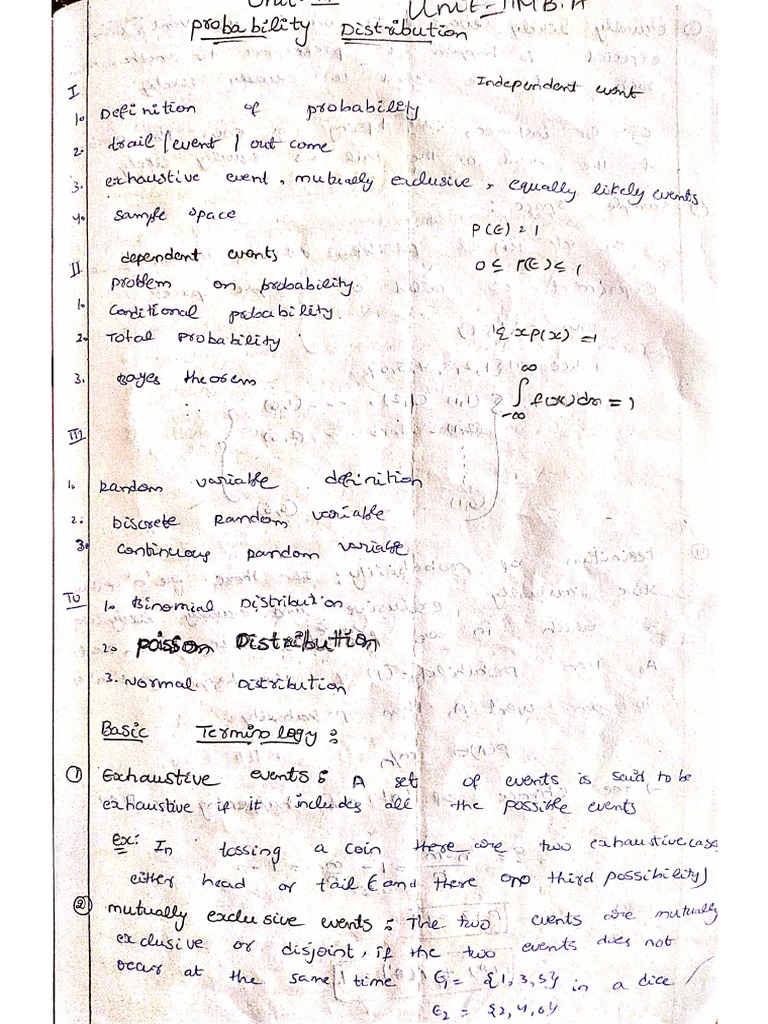 Unit-II Unit-II M.B.A
Probability Distribution
I Independent event
1. Definition of probability
2. trail / event / out come
3. exhaustive event, mutually exclusive, equally likely events
4. sample space P(E) = 1
dependent events 0 ≤ P(E) ≤ 1
II problem on probability
1. conditional probability.
2. Total probability Σ xp(x) = 1
3. Bayes theorem ∫_{-∞}^{∞} f(x) dx = 1
III
1. Random variable definition
2. Discrete Random variable
3. continuous random variable
IV 1. Binomial Distribution
2. Poission Distribution
3. Normal Distribution
Basic Terminology :
① Exhaustive events : A set of events is said to be
exhaustive if it includes all the possible events
Ex: In tossing a coin there are two exhaustive case
either head or tail (and there no third possibility)
② mutually exclusive events : The two events are mutually
exclusive or disjoint, if the two events does not
occur at the same time E1 = {1, 3, 5} in a dice
E2 = {2, 4, 6}